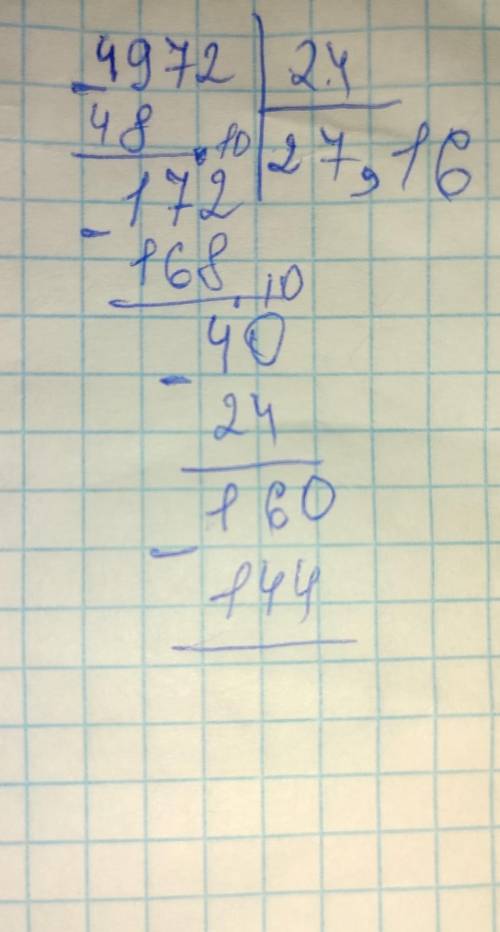 - 4972 | 24
48 27,16
. 10
- 172
168
. 10
- 40
24
160
- 144